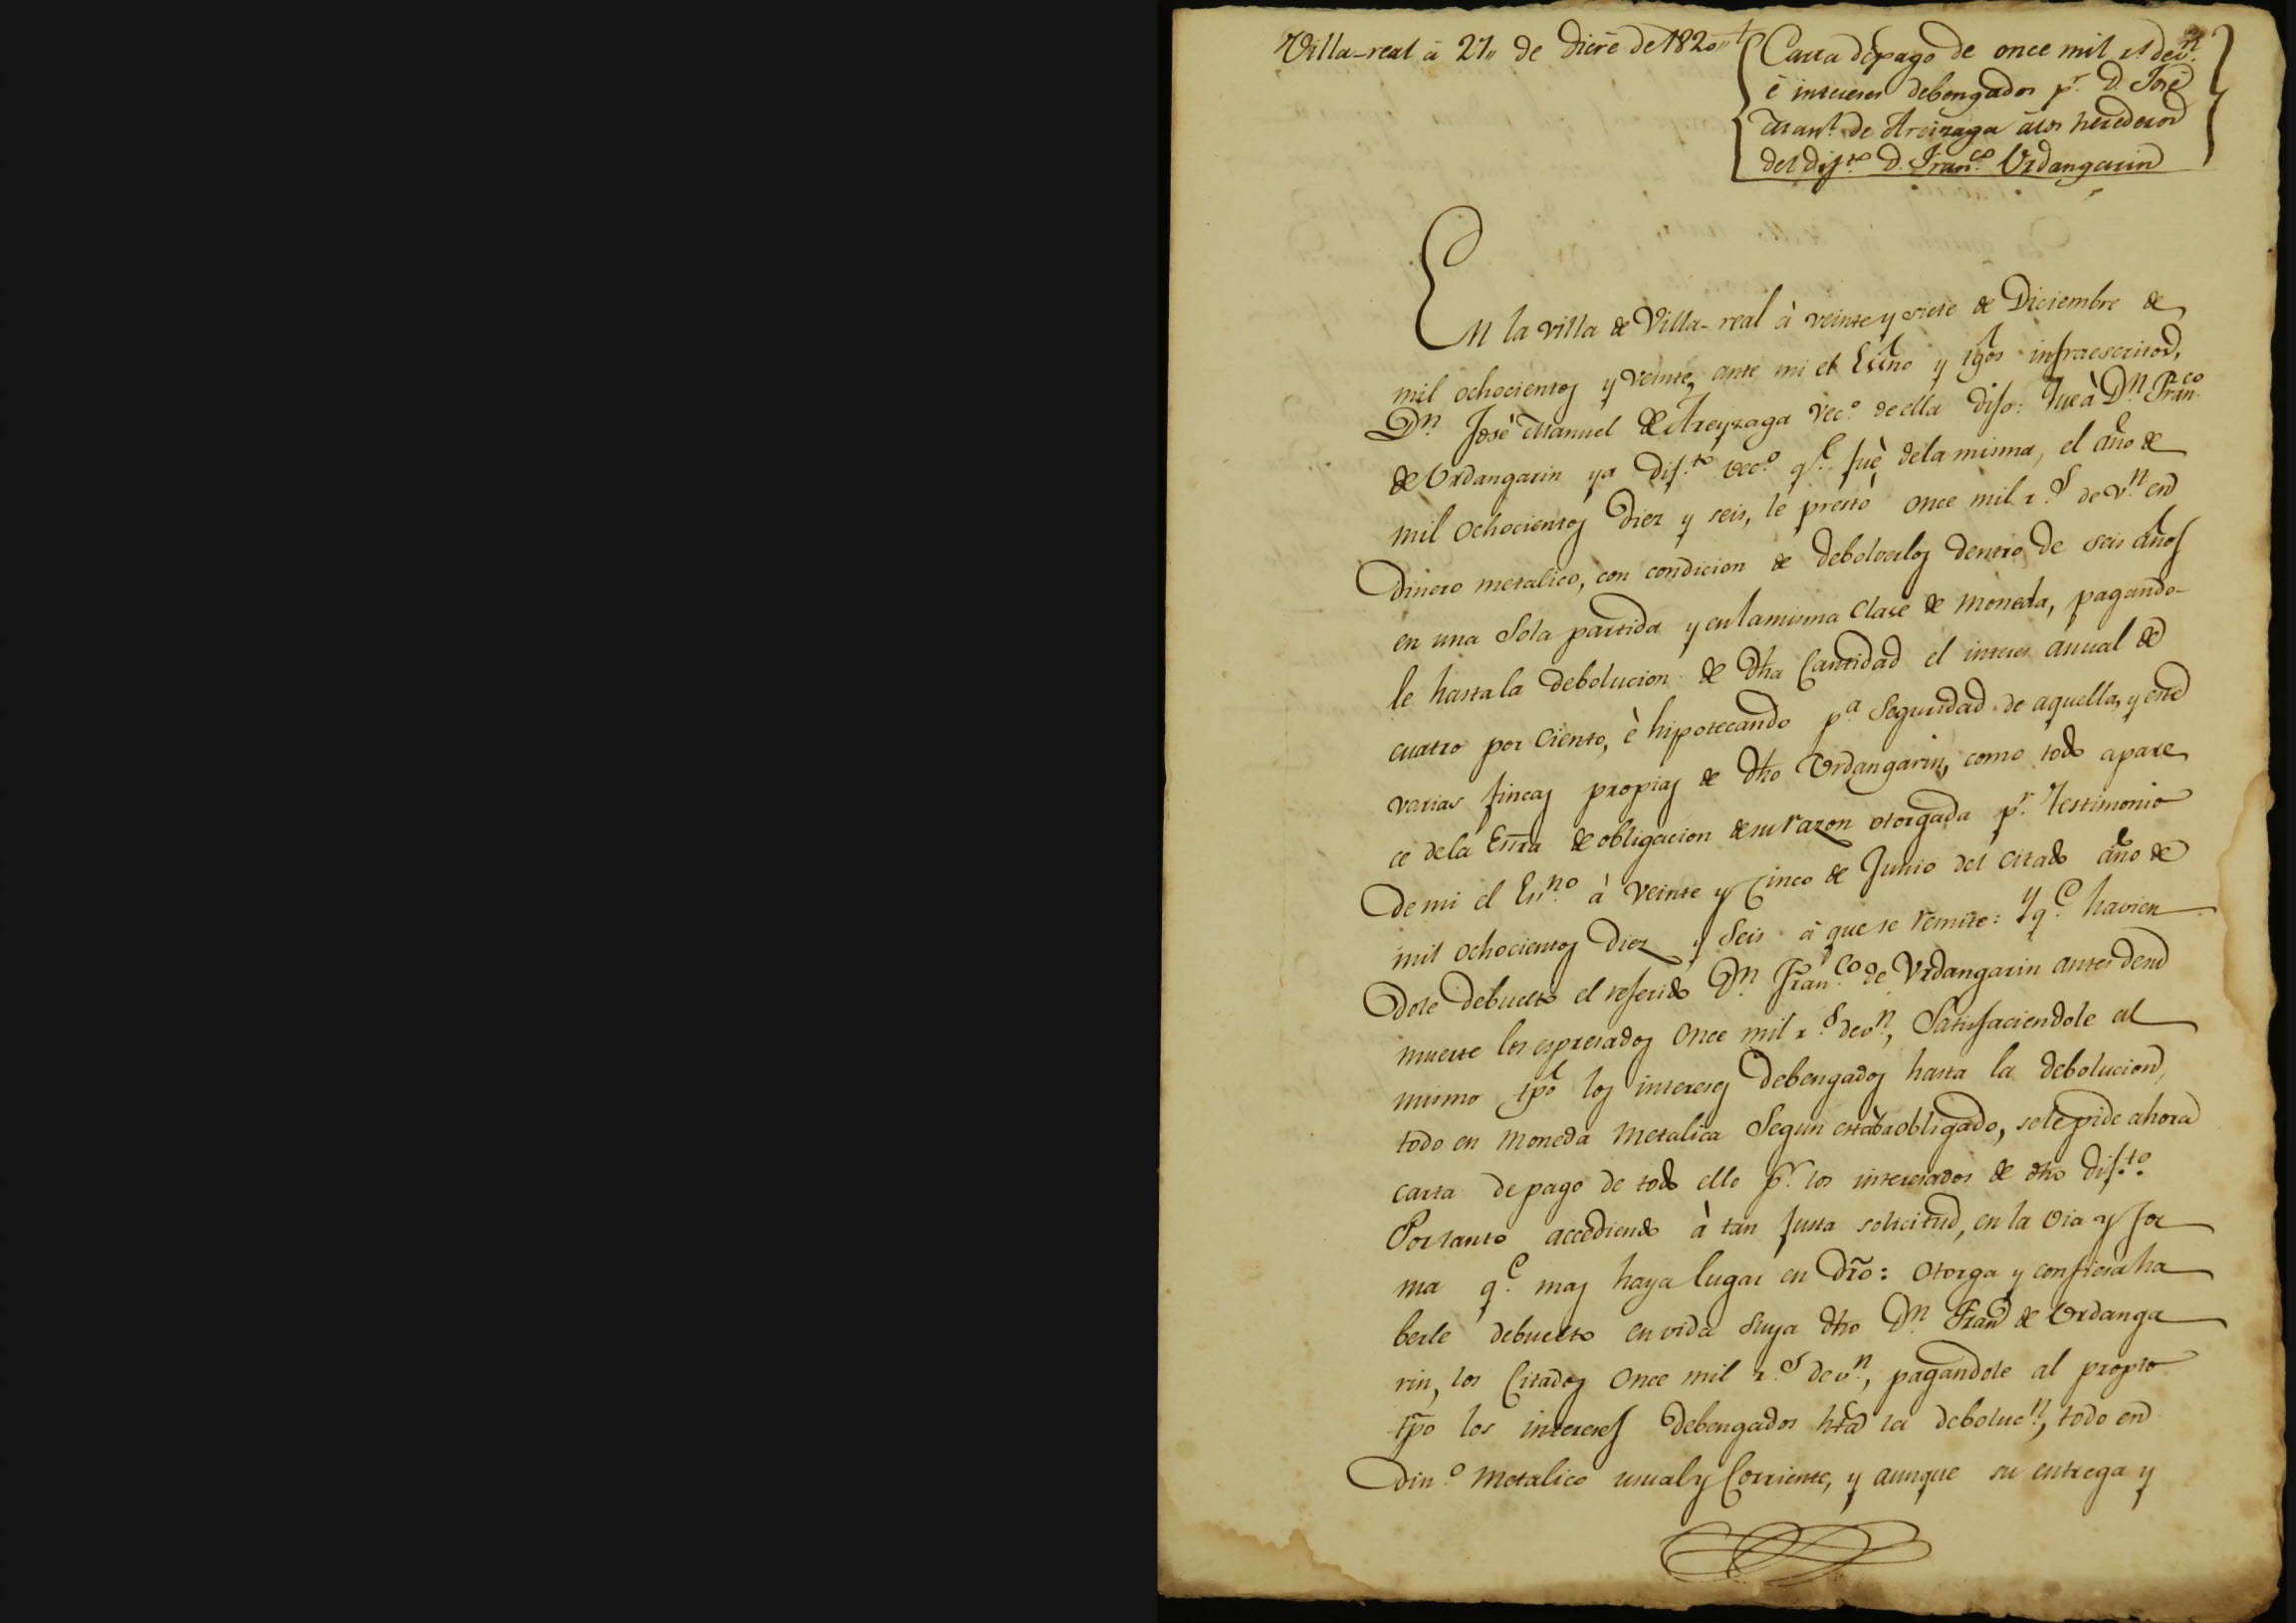 Villa-real à 27,, de Dicre de 1820,,
Carta de pago de once mil rs. de vn.
é intereses debengados pr. D. José
Manl. de Areizaga à los herederos
del difto. D. Franco. Urdangarin
En la villa de Villa-real à veinte y siete de Diciembre de
mil ochocientos y veinte, ante mi el Esno y tgos infraescritos,
Dn. José Manuel de Areyzaga vec.o de ella dijo: Que à Dn. Franco.
de Urdangarin ya dif.to vec.o q.e fuè dela misma, el año de
mil ochocientos diez y seis, le prestó once mil r.s de v.n en
dinero metalico, con condicion de debolverlos dentro de seis años
en una sola partida y en la misma clase de moneda, pagando-
le hasta la debolucion de dha cantidad el interes anual de
cuatro por ciento, è hipotecando p.a seguridad de aquella, y este
varias fincas propias de dho Urdangarin, como todo apare
ce dela Esrra de obligacion de su razon otorgada p.r testimonio
de mi el Es.no à veinte y cinco de Junio del citado año de
mil ochocientos diez y seis à que se remite: Y q.e havien
dole debuelto el referido Dn. Fran.co de Urdangarin antes de su
muerte los espresados once mil r.s de v.n, satisfaciendole al
mismo tpo los intereses debengados hasta la debolucion,
todo en moneda metalica segun estaba obligado, se le pide ahora
carta de pago de todo ello p.r los interesados de dho dif.to.
Por tanto accediendo à tan justa solicitud, en la via y for
ma q.e mas haya lugar en dro: otorga y confiesa ha
berle debuelto en vida suya dho Dn. Fran.co de Urdanga
rin, los citados once mil r.s de v.n, pagandole al propio
tpo los intereses debengados hta la deboluc.n, todo en
din.o metalico usual y corriente, y aunque su entrega y